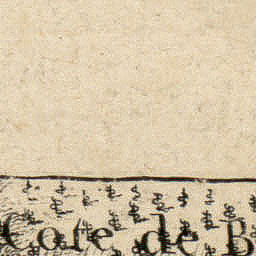 Cote de B